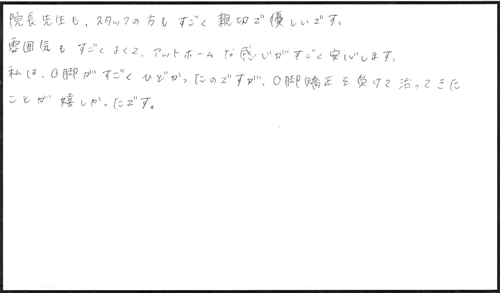 院長先生も、スタッフの方もすごく親切で優しいです。
雰囲気もすごくよくて、アットホームな感じがすごく安心します。
私は、O脚がすごくひどかったのですが、O脚矯正を受けて治ってきた
ことが嬉しかったです。